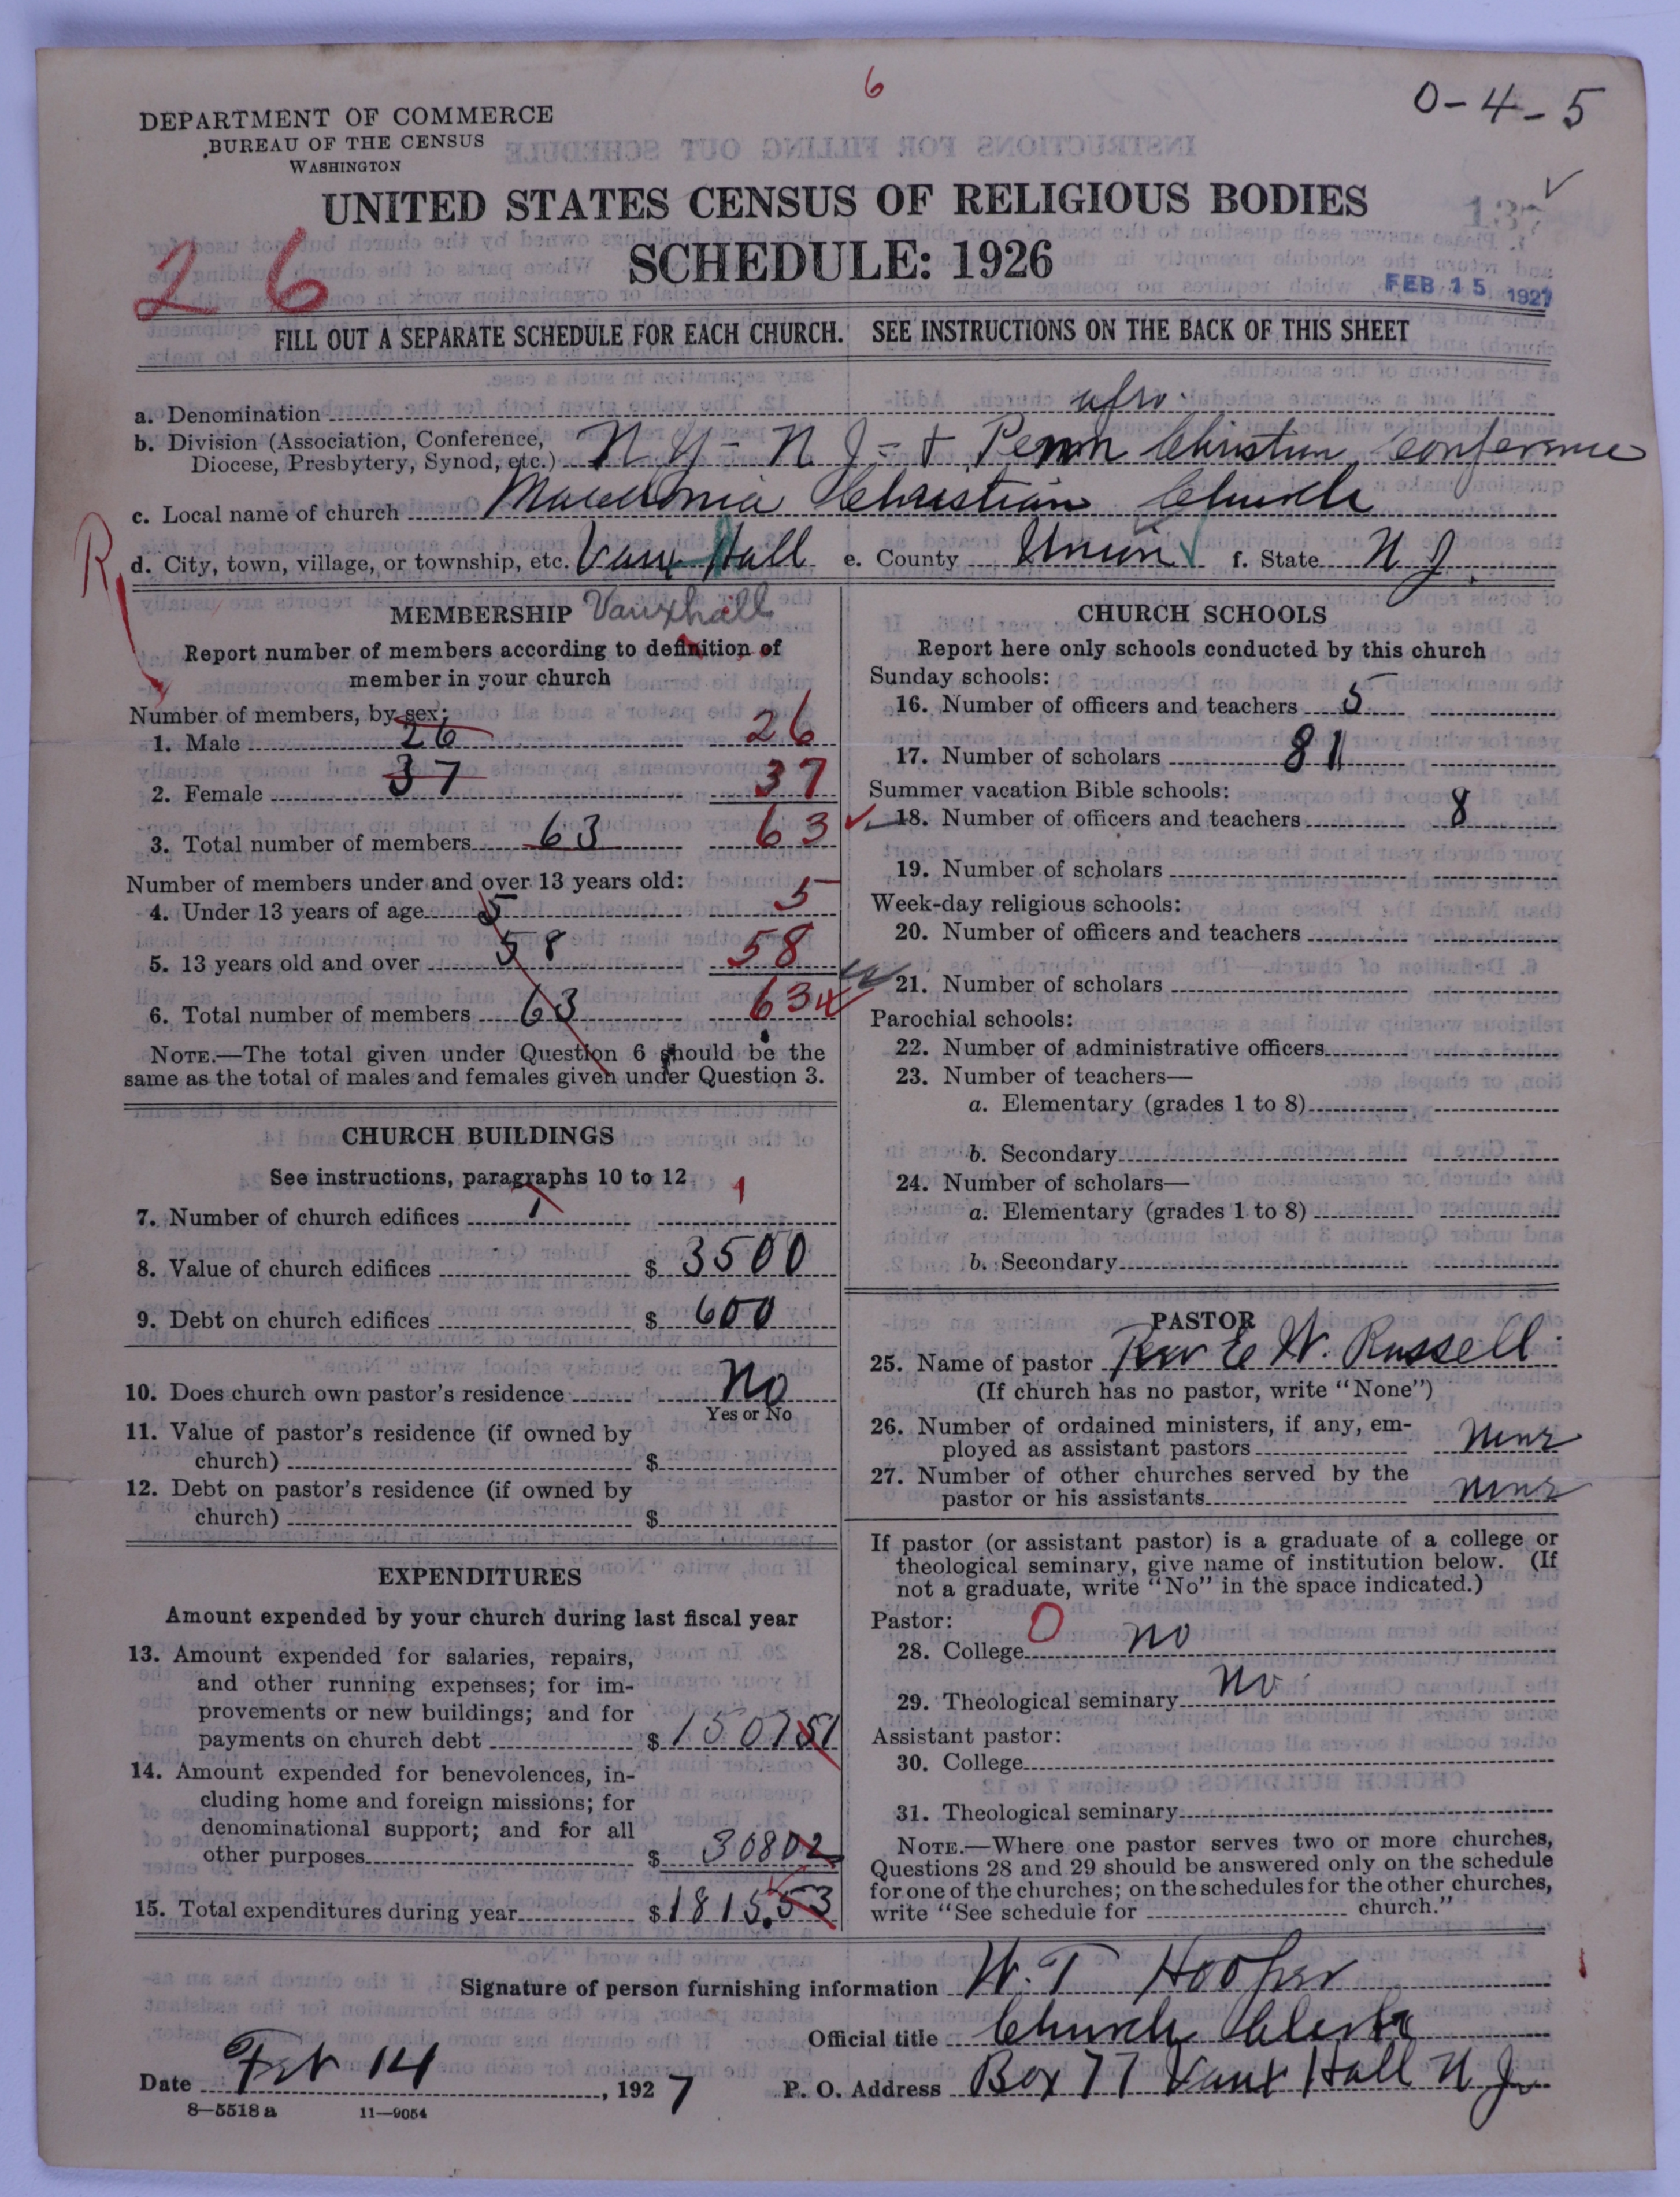 6
0-4-5
DEPARTMENT OF COMMERCE
BUREAU OF THE CENSUS
WASHINGTON
UNITED STATES CENSUS OF RELIGIOUS BODIES
137 ✓
SCHEDULE: 1926
26
FEB 15 1927
FILL OUT A SEPARATE SCHEDULE FOR EACH CHURCH. SEE INSTRUCTIONS ON THE BACK OF THIS SHEET
a. Denomination afro
b. Division (Association, Conference, Diocese, Presbytery, Synod, etc.) N Y - N J - + Penn Christian conference
c. Local name of church Macedonia Christian Church
R
d. City, town, village, or township, etc. Vaux Hall e. County Union f. State N J.
MEMBERSHIP Vauxhall
Report number of members according to definition of
member in your church
Number of members, by sex:
1. Male 26 26
2. Female 37 37
3. Total number of members 63 63
Number of members under and over 13 years old:
4. Under 13 years of age 5 5
5. 13 years old and over 58 58
6. Total number of members 63 63
NOTE.—The total given under Question 6 should be the
same as the total of males and females given under Question 3.
CHURCH BUILDINGS
See instructions, paragraphs 10 to 12
7. Number of church edifices 1 1
8. Value of church edifices $ 3500
9. Debt on church edifices $ 600
10. Does church own pastor's residence No
Yes or No
11. Value of pastor's residence (if owned by
church) $
12. Debt on pastor's residence (if owned by
church) $
EXPENDITURES
Amount expended by your church during last fiscal year
13. Amount expended for salaries, repairs,
and other running expenses; for im-
provements or new buildings; and for
payments on church debt $ 150751
14. Amount expended for benevolences, in-
cluding home and foreign missions; for
denominational support; and for all
other purposes $ 30802
15. Total expenditures during year $ 1815.53
CHURCH SCHOOLS
Report here only schools conducted by this church
Sunday schools:
16. Number of officers and teachers 5
17. Number of scholars 81
Summer vacation Bible schools:
18. Number of officers and teachers 8
19. Number of scholars
Week-day religious schools:
20. Number of officers and teachers
21. Number of scholars
Parochial schools:
22. Number of administrative officers
23. Number of teachers—
a. Elementary (grades 1 to 8)
b. Secondary
24. Number of scholars—
a. Elementary (grades 1 to 8)
b. Secondary
PASTOR
25. Name of pastor Rev E W. Russell
(If church has no pastor, write "None")
26. Number of ordained ministers, if any, em-
ployed as assistant pastors none
27. Number of other churches served by the
pastor or his assistants none
If pastor (or assistant pastor) is a graduate of a college or
theological seminary, give name of institution below. (If
not a graduate, write "No" in the space indicated.)
Pastor: 0
28. College no
29. Theological seminary no
Assistant pastor:
30. College
31. Theological seminary
NOTE.—Where one pastor serves two or more churches,
Questions 28 and 29 should be answered only on the schedule
for one of the churches; on the schedules for the other churches,
write "See schedule for church."
Signature of person furnishing information W. T Hooper
Official title Church Clerk
Date Feb 14, 1927 P. O. Address Box 77 Vaux Hall N J
8—5518 a 11—9054